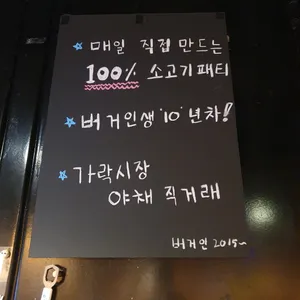 매일 직접 만드는
100% 소고기패티
버거인생 '10'년차!
가락시장
야채 직거래
버거인 2015~